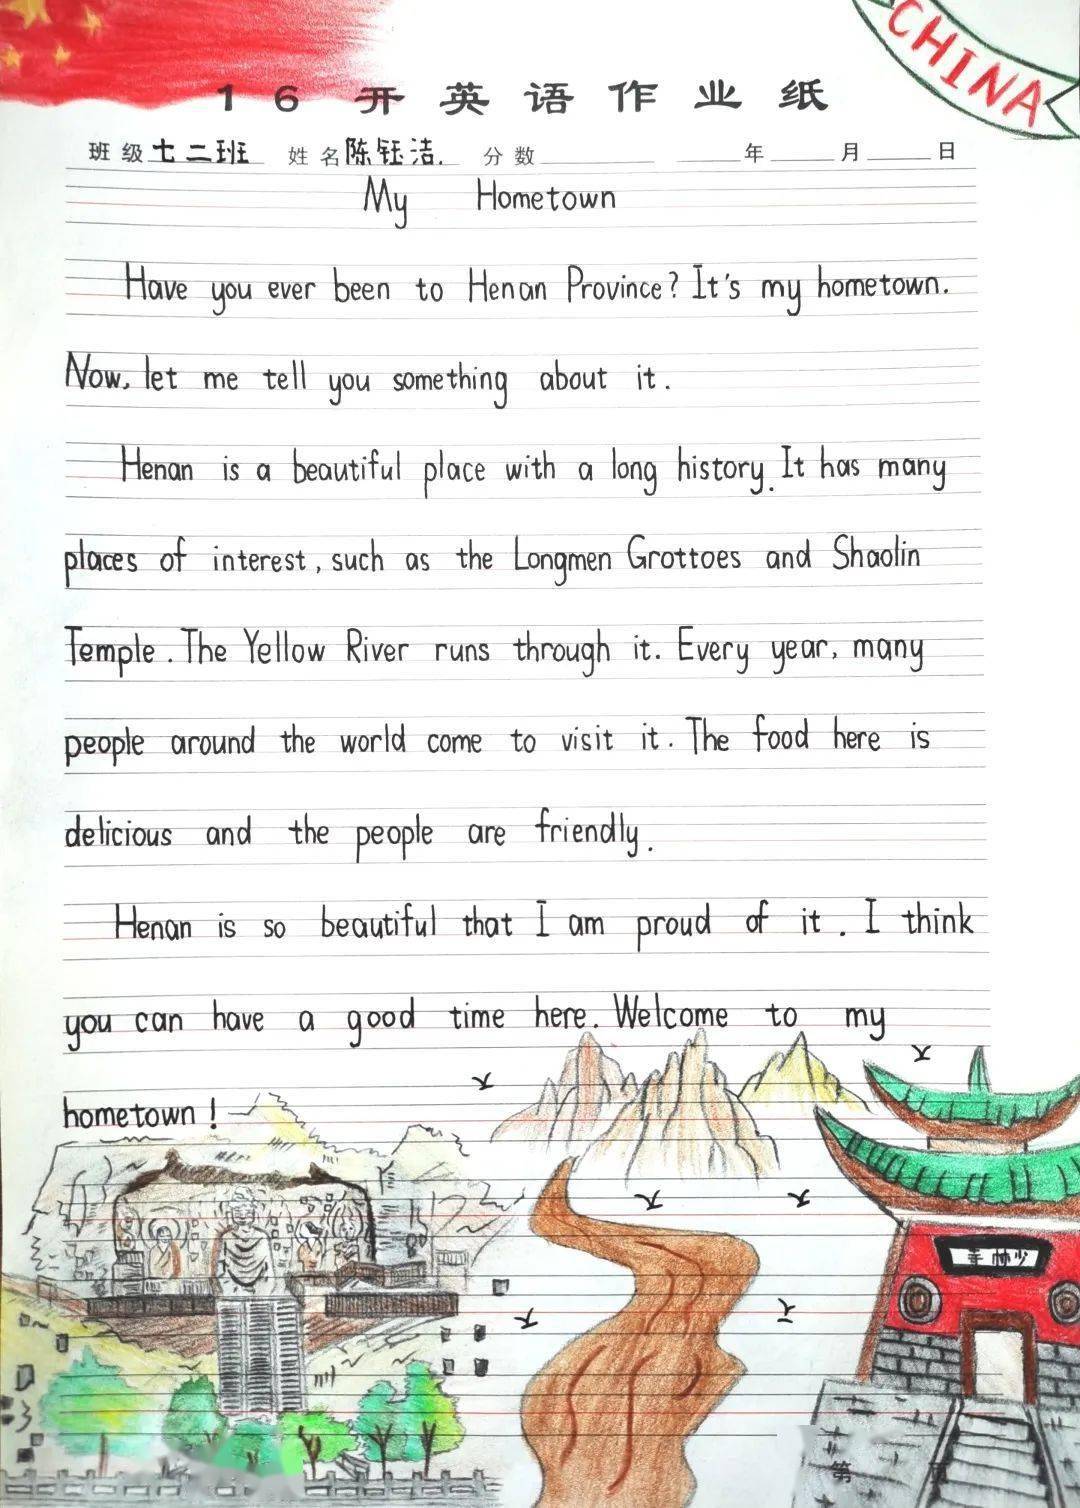 CHINA
16 开英语作业纸
班级七二班 姓名陈钰洁. 分数 年 月 日
My Hometown
Have you ever been to Henan Province? It's my hometown.
Now, let me tell you something about it.
Henan is a beautiful place with a long history. It has many
places of interest, such as the Longmen Grottoes and Shaolin
Temple. The Yellow River runs through it. Every year, many
people around the world come to visit it. The food here is
delicious and the people are friendly.
Henan is so beautiful that I am proud of it. I think
you can have a good time here. Welcome to my
hometown!
寺林少
第 页